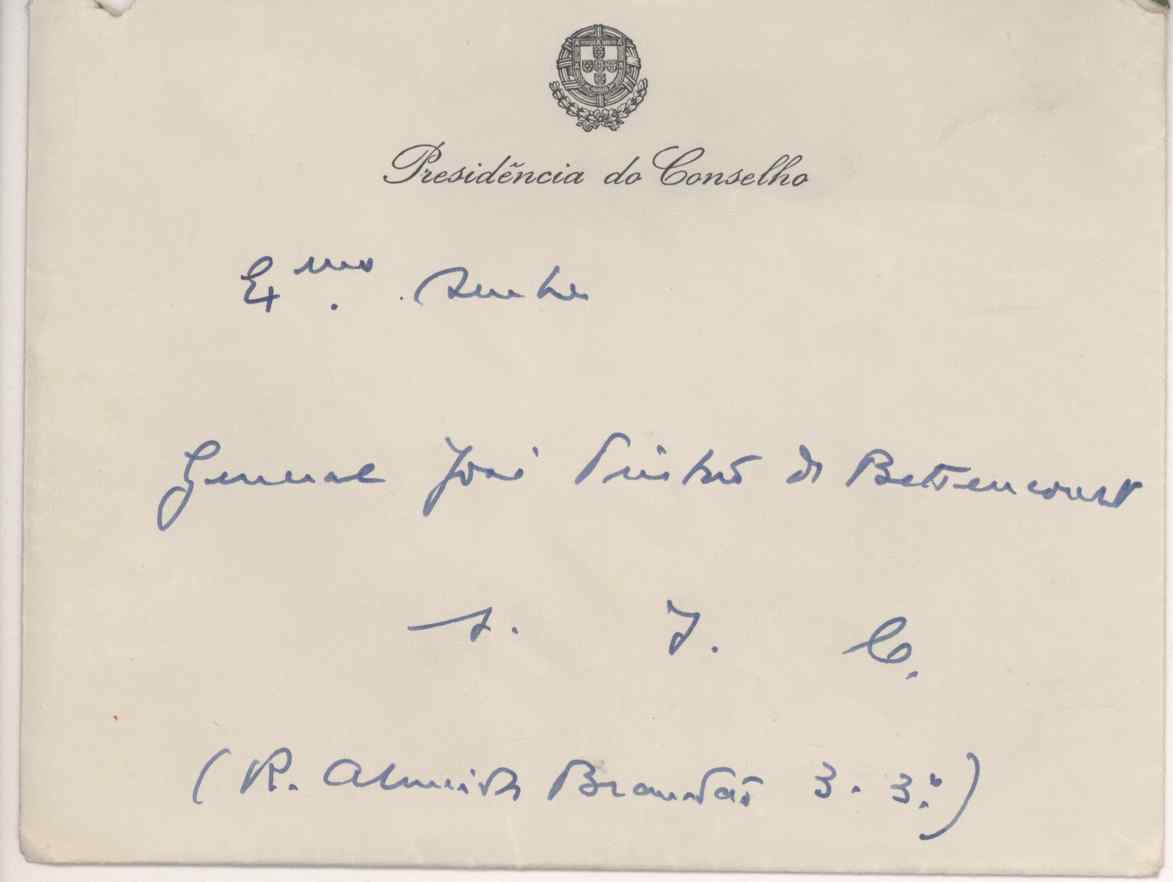 Presidência do Conselho
Exmo. Senhor
General José Tristão de Bettencourt
S. J. C.
(R. Almeida Brandão 3. 3.º)